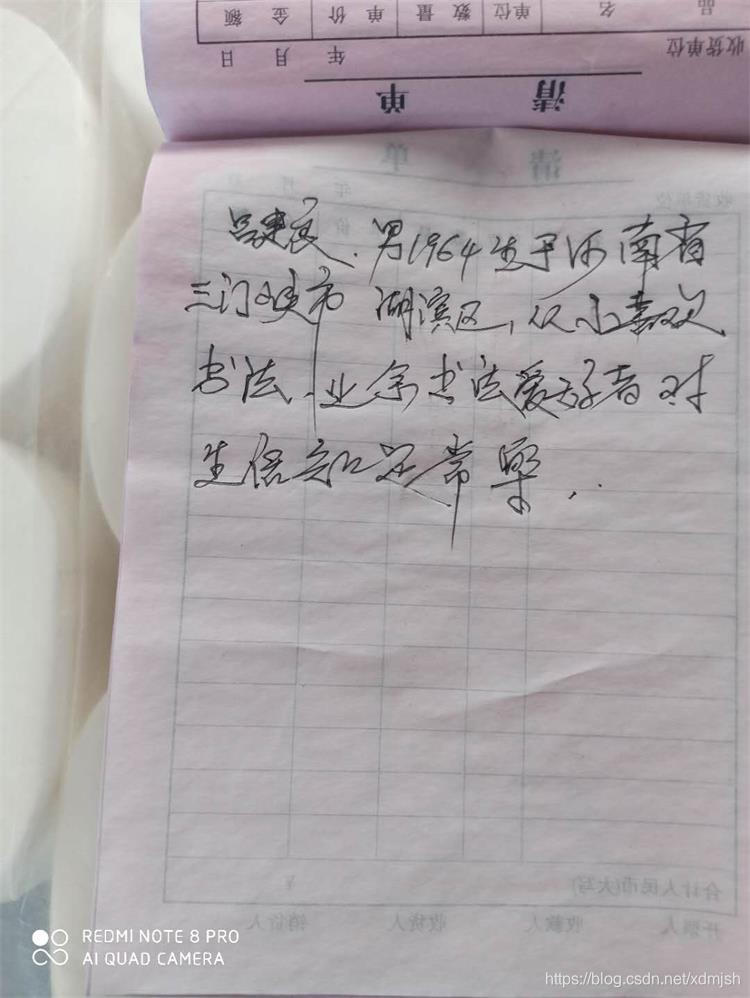 品 名 单位 数量 单价 金额
收货单位 年 月 日
清 单
清 单
收货单位 年
吕建良.男1964生于河南省
三门峡市 湖滨区,从小喜欢
书法.业余书法爱好者 对
生活知足常樂...
合计人民币(大写) ¥
开票人 收款人 收货人 销价人
REDMI NOTE 8 PRO
AI QUAD CAMERA
https://blog.csdn.net/xdmjsh